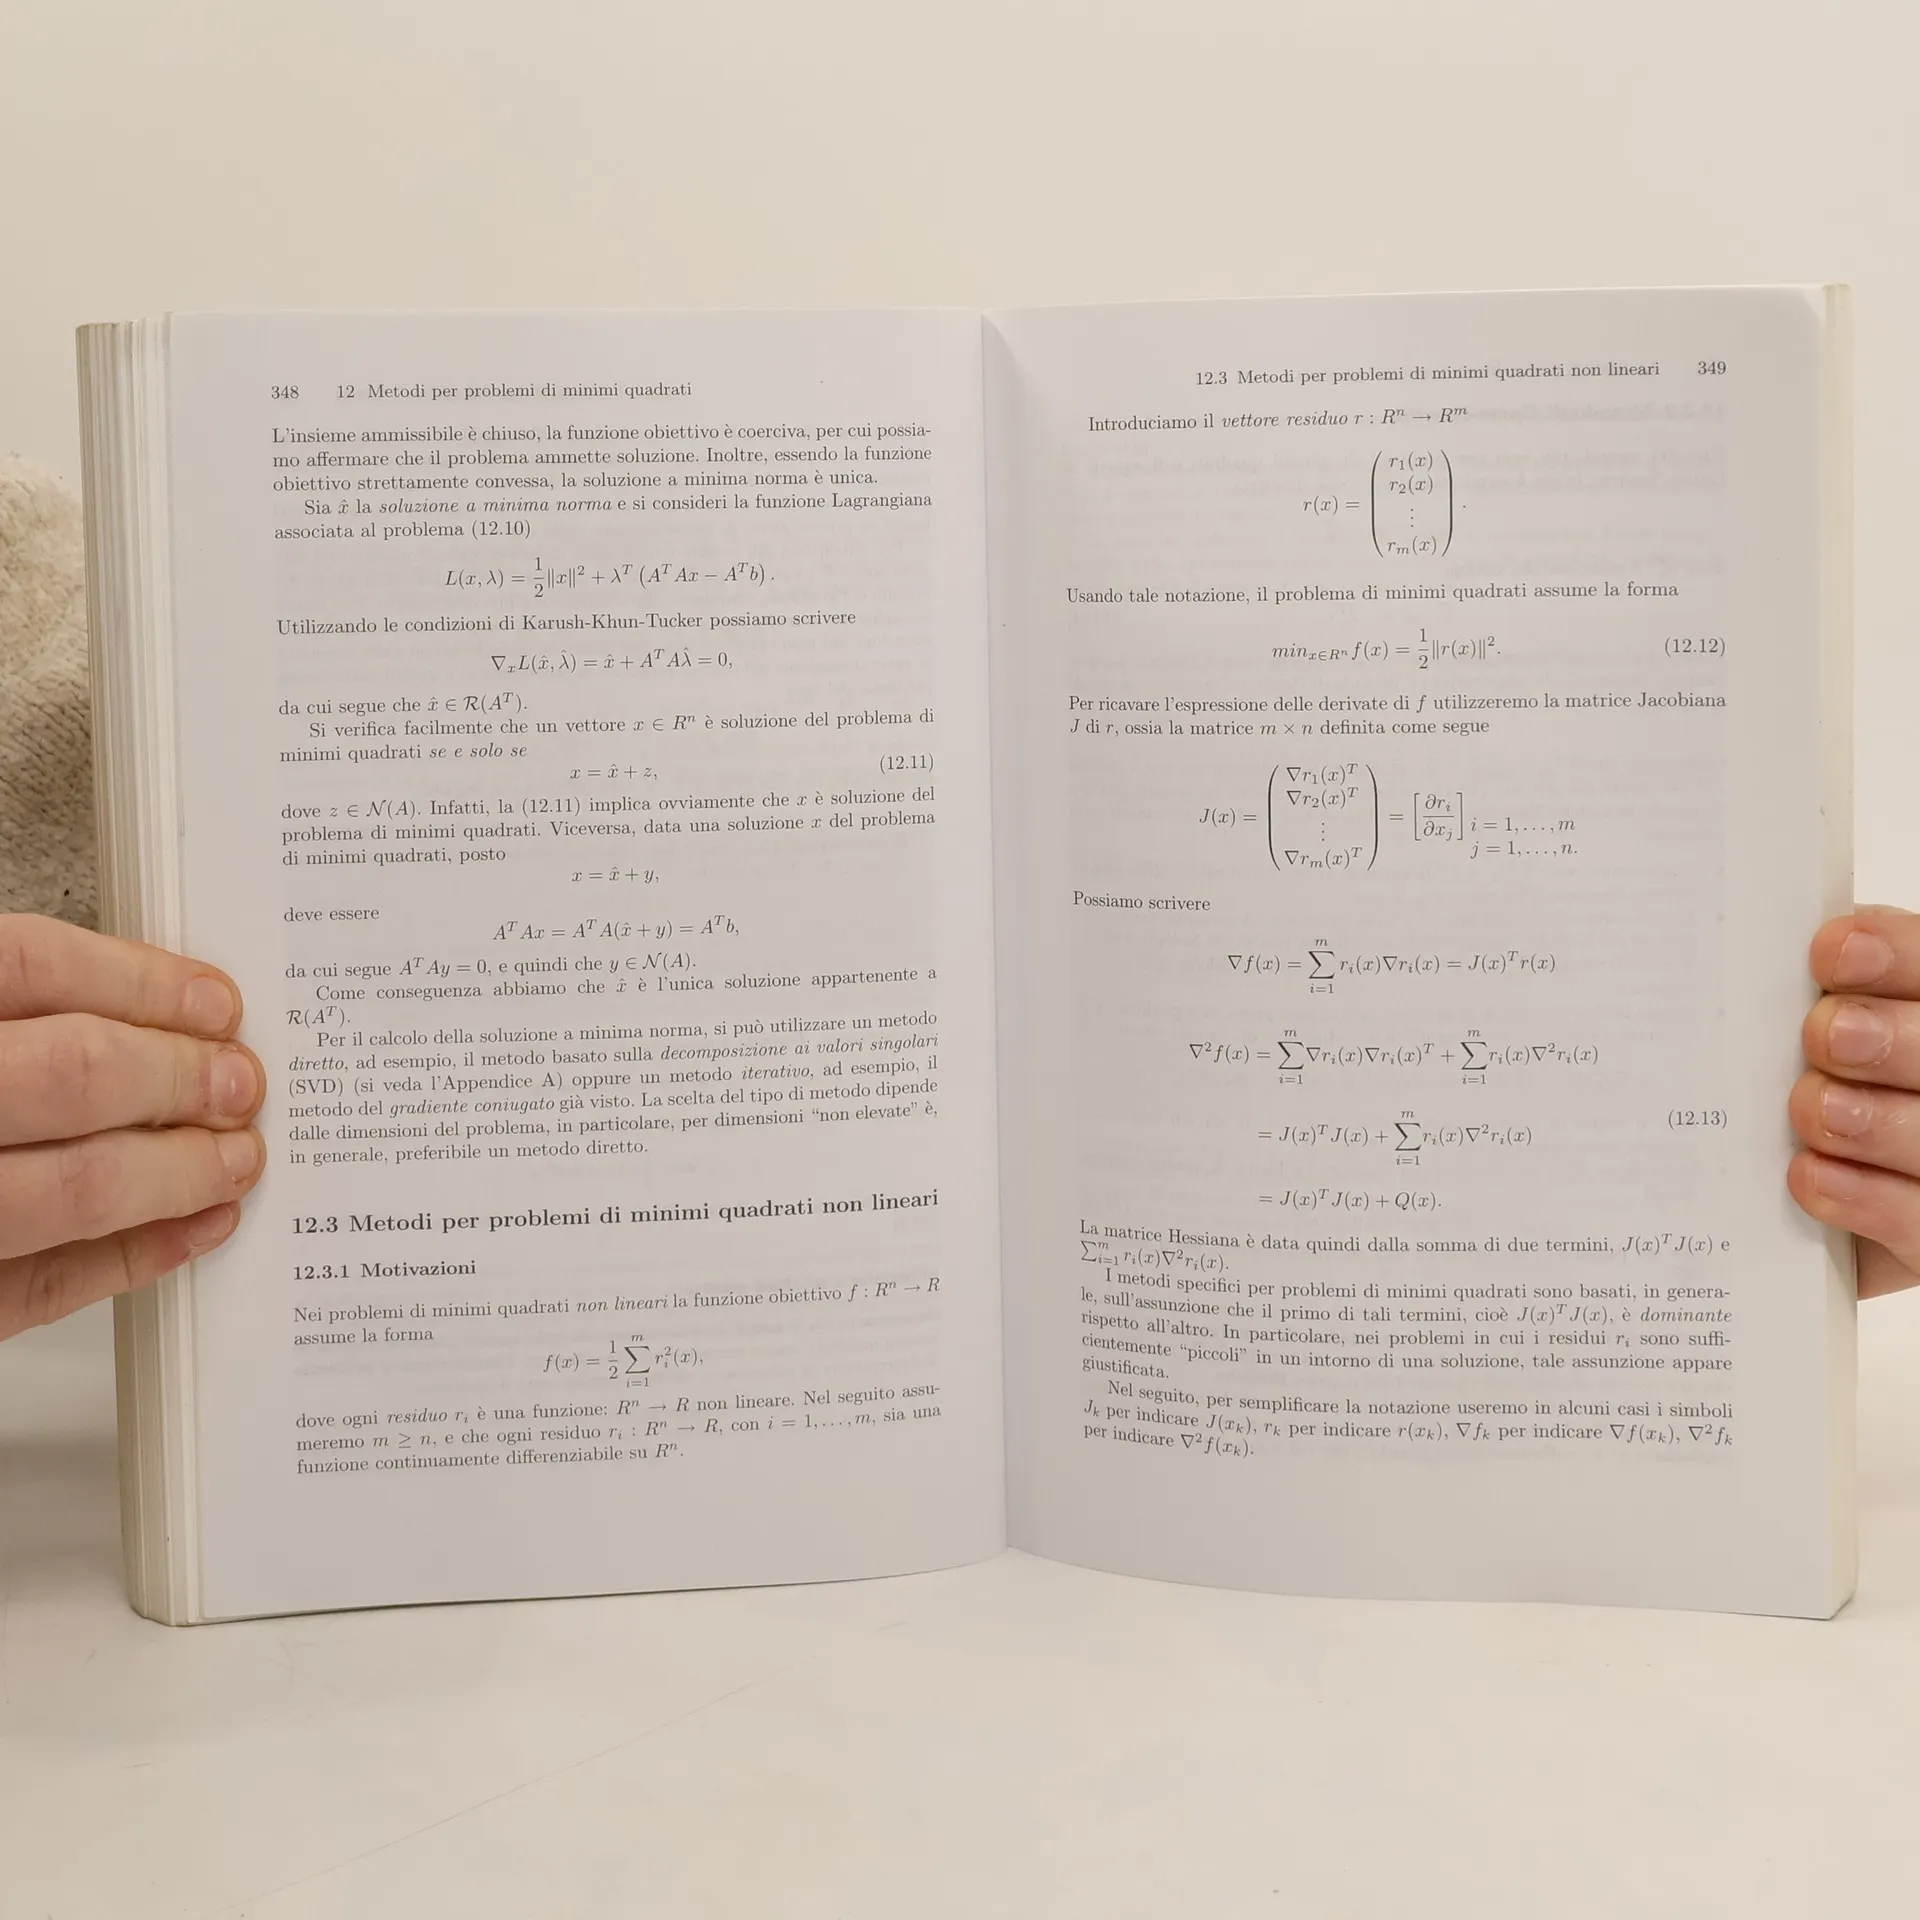 348 12 Metodi per problemi di minimi quadrati
L'insieme ammissibile è chiuso, la funzione obiettivo è coerciva, per cui possia-
mo affermare che il problema ammette soluzione. Inoltre, essendo la funzione
obiettivo strettamente convessa, la soluzione a minima norma è unica.
Sia x̂ la soluzione a minima norma e si consideri la funzione Lagrangiana
associata al problema (12.10)
L(x, λ) = 1/2 ‖x‖² + λᵀ (AᵀAx − Aᵀb) .
Utilizzando le condizioni di Karush-Khun-Tucker possiamo scrivere
∇ₓL(x̂, λ̂) = x̂ + AᵀAλ̂ = 0,
da cui segue che x̂ ∈ R(Aᵀ).
Si verifica facilmente che un vettore x ∈ Rⁿ è soluzione del problema di
minimi quadrati se e solo se
x = x̂ + z, (12.11)
dove z ∈ N(A). Infatti, la (12.11) implica ovviamente che x è soluzione del
problema di minimi quadrati. Viceversa, data una soluzione x del problema
di minimi quadrati, posto
x = x̂ + y,
deve essere
AᵀAx = AᵀA(x̂ + y) = Aᵀb,
da cui segue AᵀAy = 0, e quindi che y ∈ N(A).
Come conseguenza abbiamo che x̂ è l'unica soluzione appartenente a
R(Aᵀ).
Per il calcolo della soluzione a minima norma, si può utilizzare un metodo
diretto, ad esempio, il metodo basato sulla decomposizione ai valori singolari
(SVD) (si veda l'Appendice A) oppure un metodo iterativo, ad esempio, il
metodo del gradiente coniugato già visto. La scelta del tipo di metodo dipende
dalle dimensioni del problema, in particolare, per dimensioni "non elevate" è,
in generale, preferibile un metodo diretto.
12.3 Metodi per problemi di minimi quadrati non lineari
12.3.1 Motivazioni
Nei problemi di minimi quadrati non lineari la funzione obiettivo f : Rⁿ → R
assume la forma
f(x) = 1/2 ∑_{i=1}^{m} r_i²(x),
dove ogni residuo r_i è una funzione: Rⁿ → R non lineare. Nel seguito assu-
meremo m ≥ n, e che ogni residuo r_i : Rⁿ → R, con i = 1, . . . , m, sia una
funzione continuamente differenziabile su Rⁿ.
12.3 Metodi per problemi di minimi quadrati non lineari 349
Introduciamo il vettore residuo r : Rⁿ → Rᵐ
r₁(x)
r₂(x)
r(x) = ⋮ .
r_m(x)
Usando tale notazione, il problema di minimi quadrati assume la forma
min_{x∈Rⁿ} f(x) = 1/2 ‖r(x)‖². (12.12)
Per ricavare l'espressione delle derivate di f utilizzeremo la matrice Jacobiana
J di r, ossia la matrice m × n definita come segue
∇r₁(x)ᵀ
∇r₂(x)ᵀ
J(x) = ⋮ = [∂r_i/∂x_j] i = 1, . . . , m
∇r_m(x)ᵀ j = 1, . . . , n.
Possiamo scrivere
∇f(x) = ∑_{i=1}^{m} r_i(x)∇r_i(x) = J(x)ᵀr(x)
∇²f(x) = ∑_{i=1}^{m} ∇r_i(x)∇r_i(x)ᵀ + ∑_{i=1}^{m} r_i(x)∇²r_i(x)
= J(x)ᵀJ(x) + ∑_{i=1}^{m} r_i(x)∇²r_i(x) (12.13)
= J(x)ᵀJ(x) + Q(x).
La matrice Hessiana è data quindi dalla somma di due termini, J(x)ᵀJ(x) e
∑_{i=1}^{m} r_i(x)∇²r_i(x).
I metodi specifici per problemi di minimi quadrati sono basati, in genera-
le, sull'assunzione che il primo di tali termini, cioè J(x)ᵀJ(x), è dominante
rispetto all'altro. In particolare, nei problemi in cui i residui r_i sono suffi-
cientemente "piccoli" in un intorno di una soluzione, tale assunzione appare
giustificata.
Nel seguito, per semplificare la notazione useremo in alcuni casi i simboli
J_k per indicare J(x_k), r_k per indicare r(x_k), ∇f_k per indicare ∇f(x_k), ∇²f_k
per indicare ∇²f(x_k).